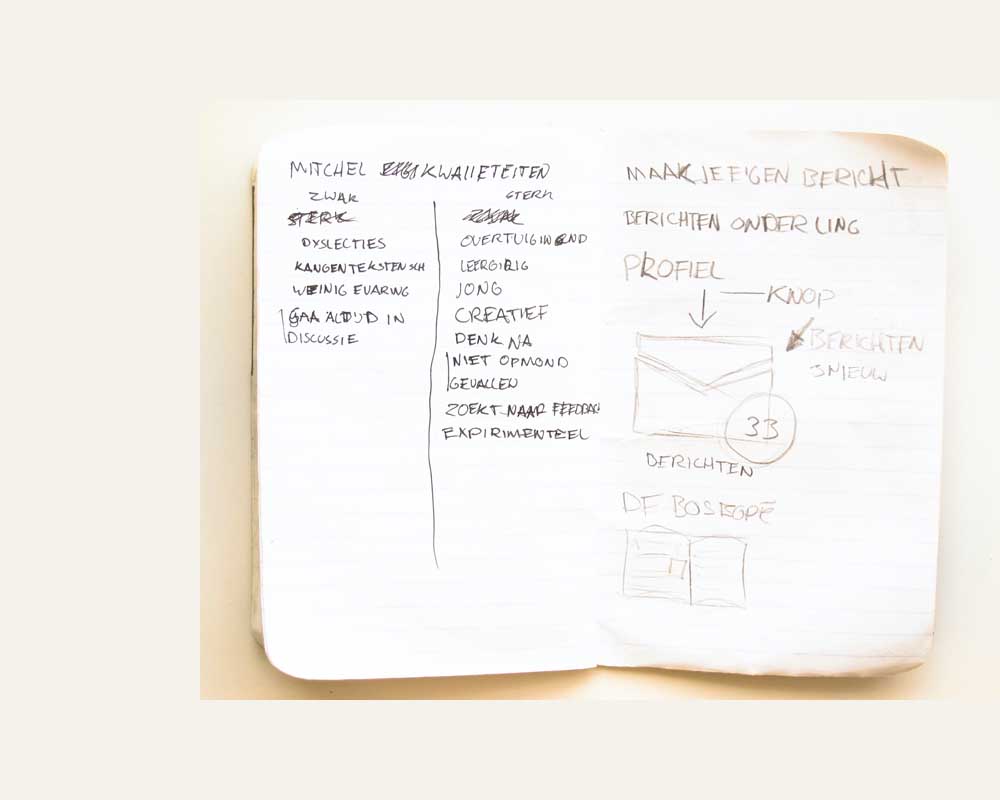 MITCHEL KWALIETEITEN
ZWAK
STERK
DYSLECTIES
KANGENTEKSTENSCH
WEINIG EVARING
GAA ALTIJD IN
DISCUSSIE
STERK
ZWAK
OVERTUIGINEND
LEERGIRIG
JONG
CREATIEF
DENK NA
NIET OPMOND
GEVALLEN
ZOEKT NAAR FEEDBACK
EXPIRIMENTEEL
MAAK JE EIGEN BERICHT
BERICHTEN ONDERLING
PROFIEL
KNOP
BERICHTEN
3 NIEUW
33
BERICHTEN